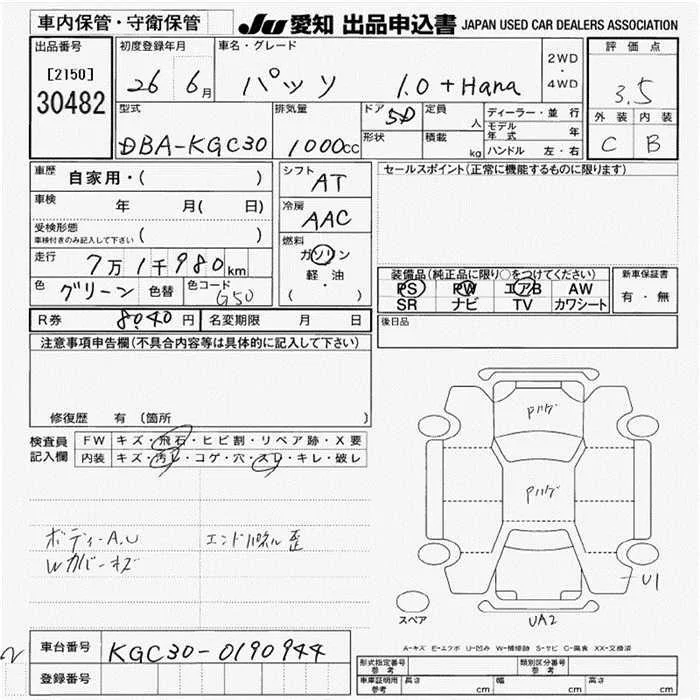 車内保管・守衛保管 JU 愛知 出品申込書 JAPAN USED CAR DEALERS ASSOCIATION
出品番号 [2150] 30482
初度登録年月 26 6月
車名・グレード パッソ 1.0 +Hana
2WD・4WD
評価点 3.5
外装 内装
C B
型式 DBA-KGC30
排気量 1000cc
ドア 5D
形状
定員 人
積載 kg
ディーラー・並行
モデル年式 年
ハンドル 左・右
車歴 自家用・( )
車検 年 月( 日)
受検形態
車検付きのみ記入して下さい ( )
走行 7万1千980km
色 グリーン 色替 色コード G50
シフト AT
冷房 AAC
燃料
ガソリン
軽・油
( )
セールスポイント(正常に機能するものに限ります)
装備品(純正品に限り○をつけてください)
PS PW エアB AW
SR ナビ TV カワシート
新車保証書
有・無
R券 8040円 名変期限 月 日
後日品
注意事項申告欄(不具合内容等は具体的に記入して下さい)
修復歴 有 (箇所 )
検査員記入欄
FW キズ・飛石・ヒビ割・リペア跡・X要
内装 キズ・汚レ・コゲ・穴・スレ・キレ・破レ
ボディーA.U エンドパネル歪
Wカバーキズ
Pハゲ
Pハゲ
U1
UA2
スペア
A-キズ E-エクボ U-凹み W-補修跡 S-サビ C-腐食 XX-交換済
車台番号 KGC30-0190944
登録番号
2
形式指定番号 参考 類別区分番号 参考
車庫証明用 参考 長さ cm 幅 cm 高さ cm